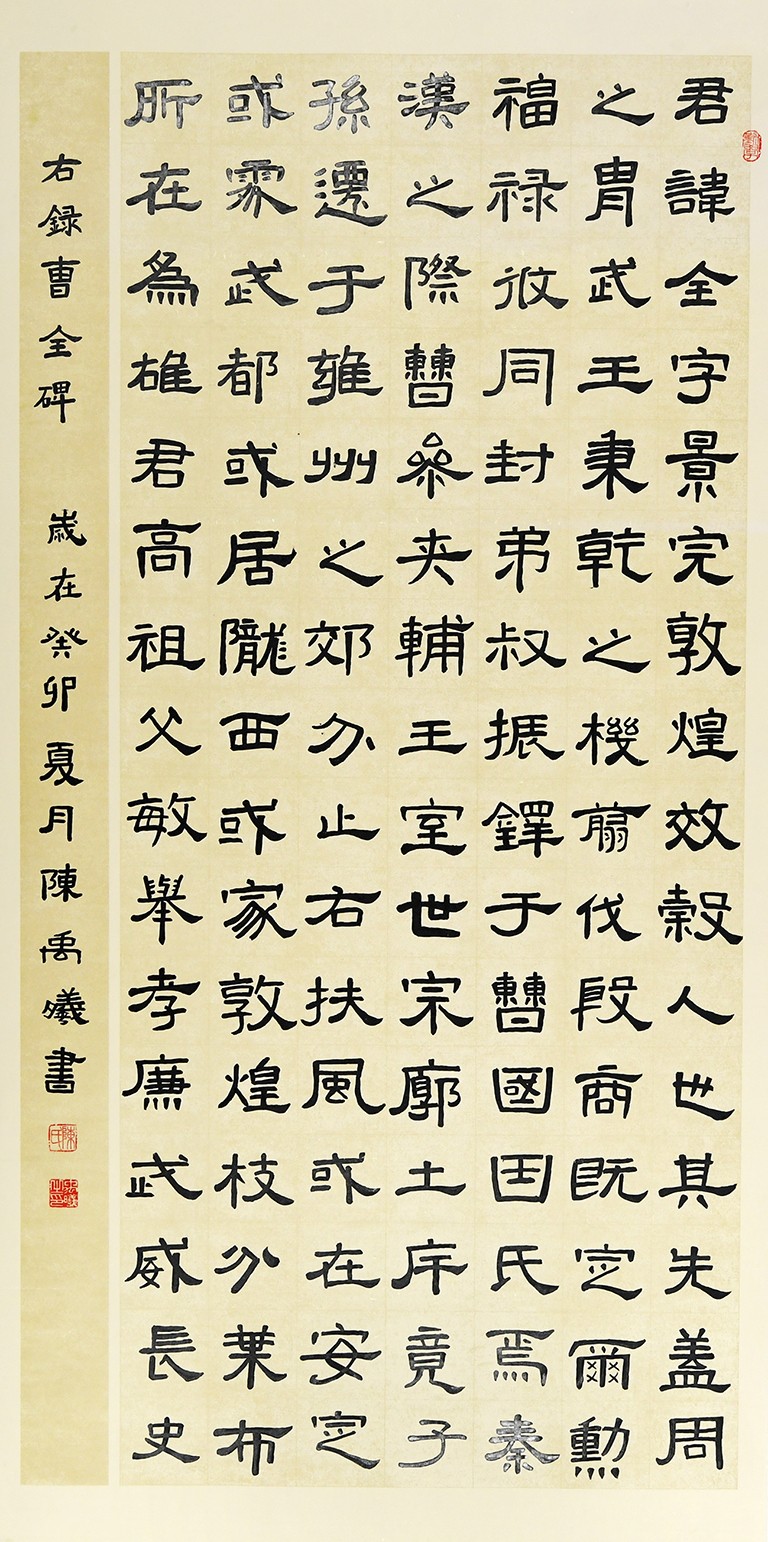 君諱全字景完敦煌效穀人也其先盖周
之胄武王秉乾之機翦伐殷商既定爾勳
福禄攸同封弟叔振鐸于曺國因氏焉秦
漢之際曺參夹輔王室世宗廓土斥竟子
孫遷于雍州之郊分止右扶風或在安定
或處武都或居隴西或家敦煌枝分葉布
所在為雄君高祖父敏舉孝廉武威長史
右録曺全碑 歲在癸卯夏月陳禹曦書
陳氏